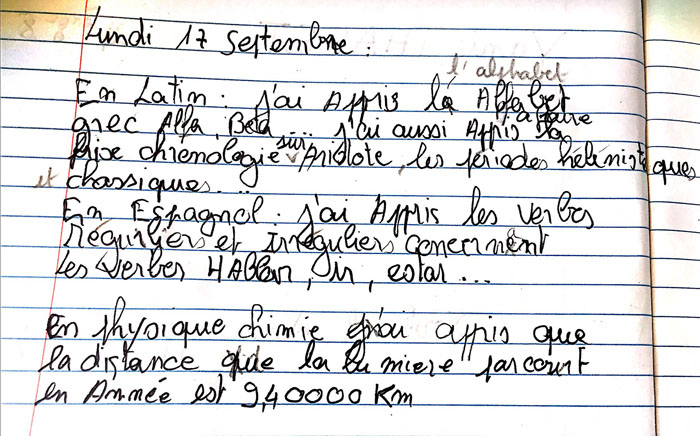 Lundi 17 septembre.
l'alphabet
En Latin : j'ai Appris lé Alfabet
grec Alfa, Beta ... j'ai aussi Appris à faire
frise chronologie sur Aristote, les périodes hélénistiques
et chassiques...
En Espagnol : j'ai Appris les verbes
Réguriers et Irréguliers concernent
les verbes HABlar, ir, estar ...
En physique chimie j'ai appris que
la distance que la lumiere parcourt
en Année est 9,40000 Km